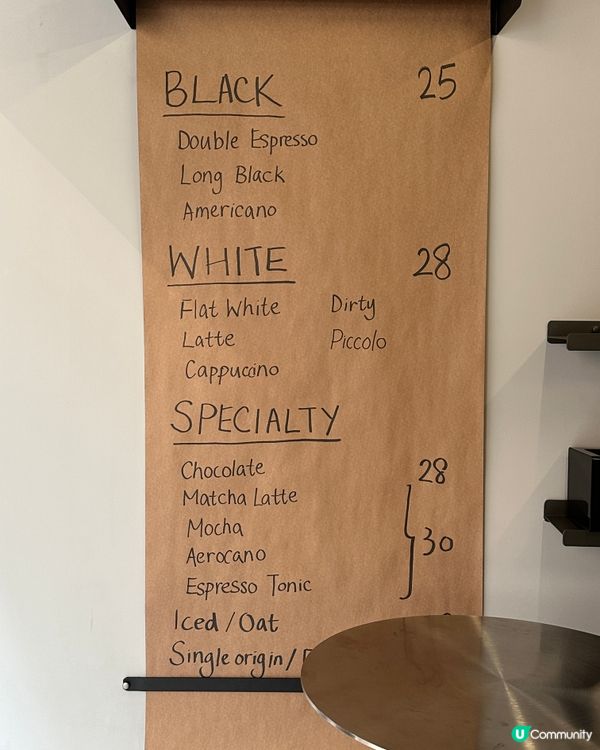 BLACK 25
Double Espresso
Long Black
Americano
WHITE 28
Flat White Dirty
Latte Piccolo
Cappuccino
SPECIALTY
Chocolate 28
Matcha Latte
Mocha
30
Aerocano
Espresso Tonic
Iced / Oat
Single origin /
U Community